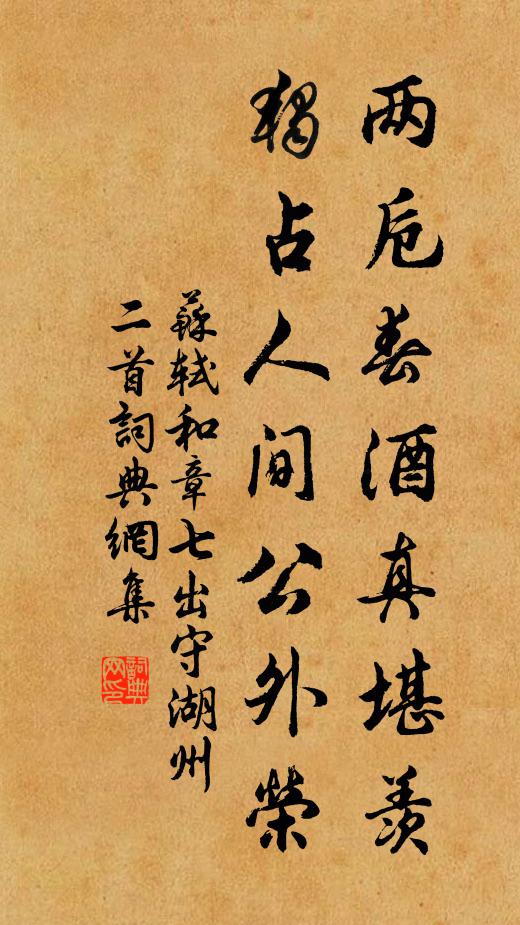 两卮春酒真堪羡
独占人间公外荣
蘇轼和章七出守湖州
二首詞典網集
詞典网印